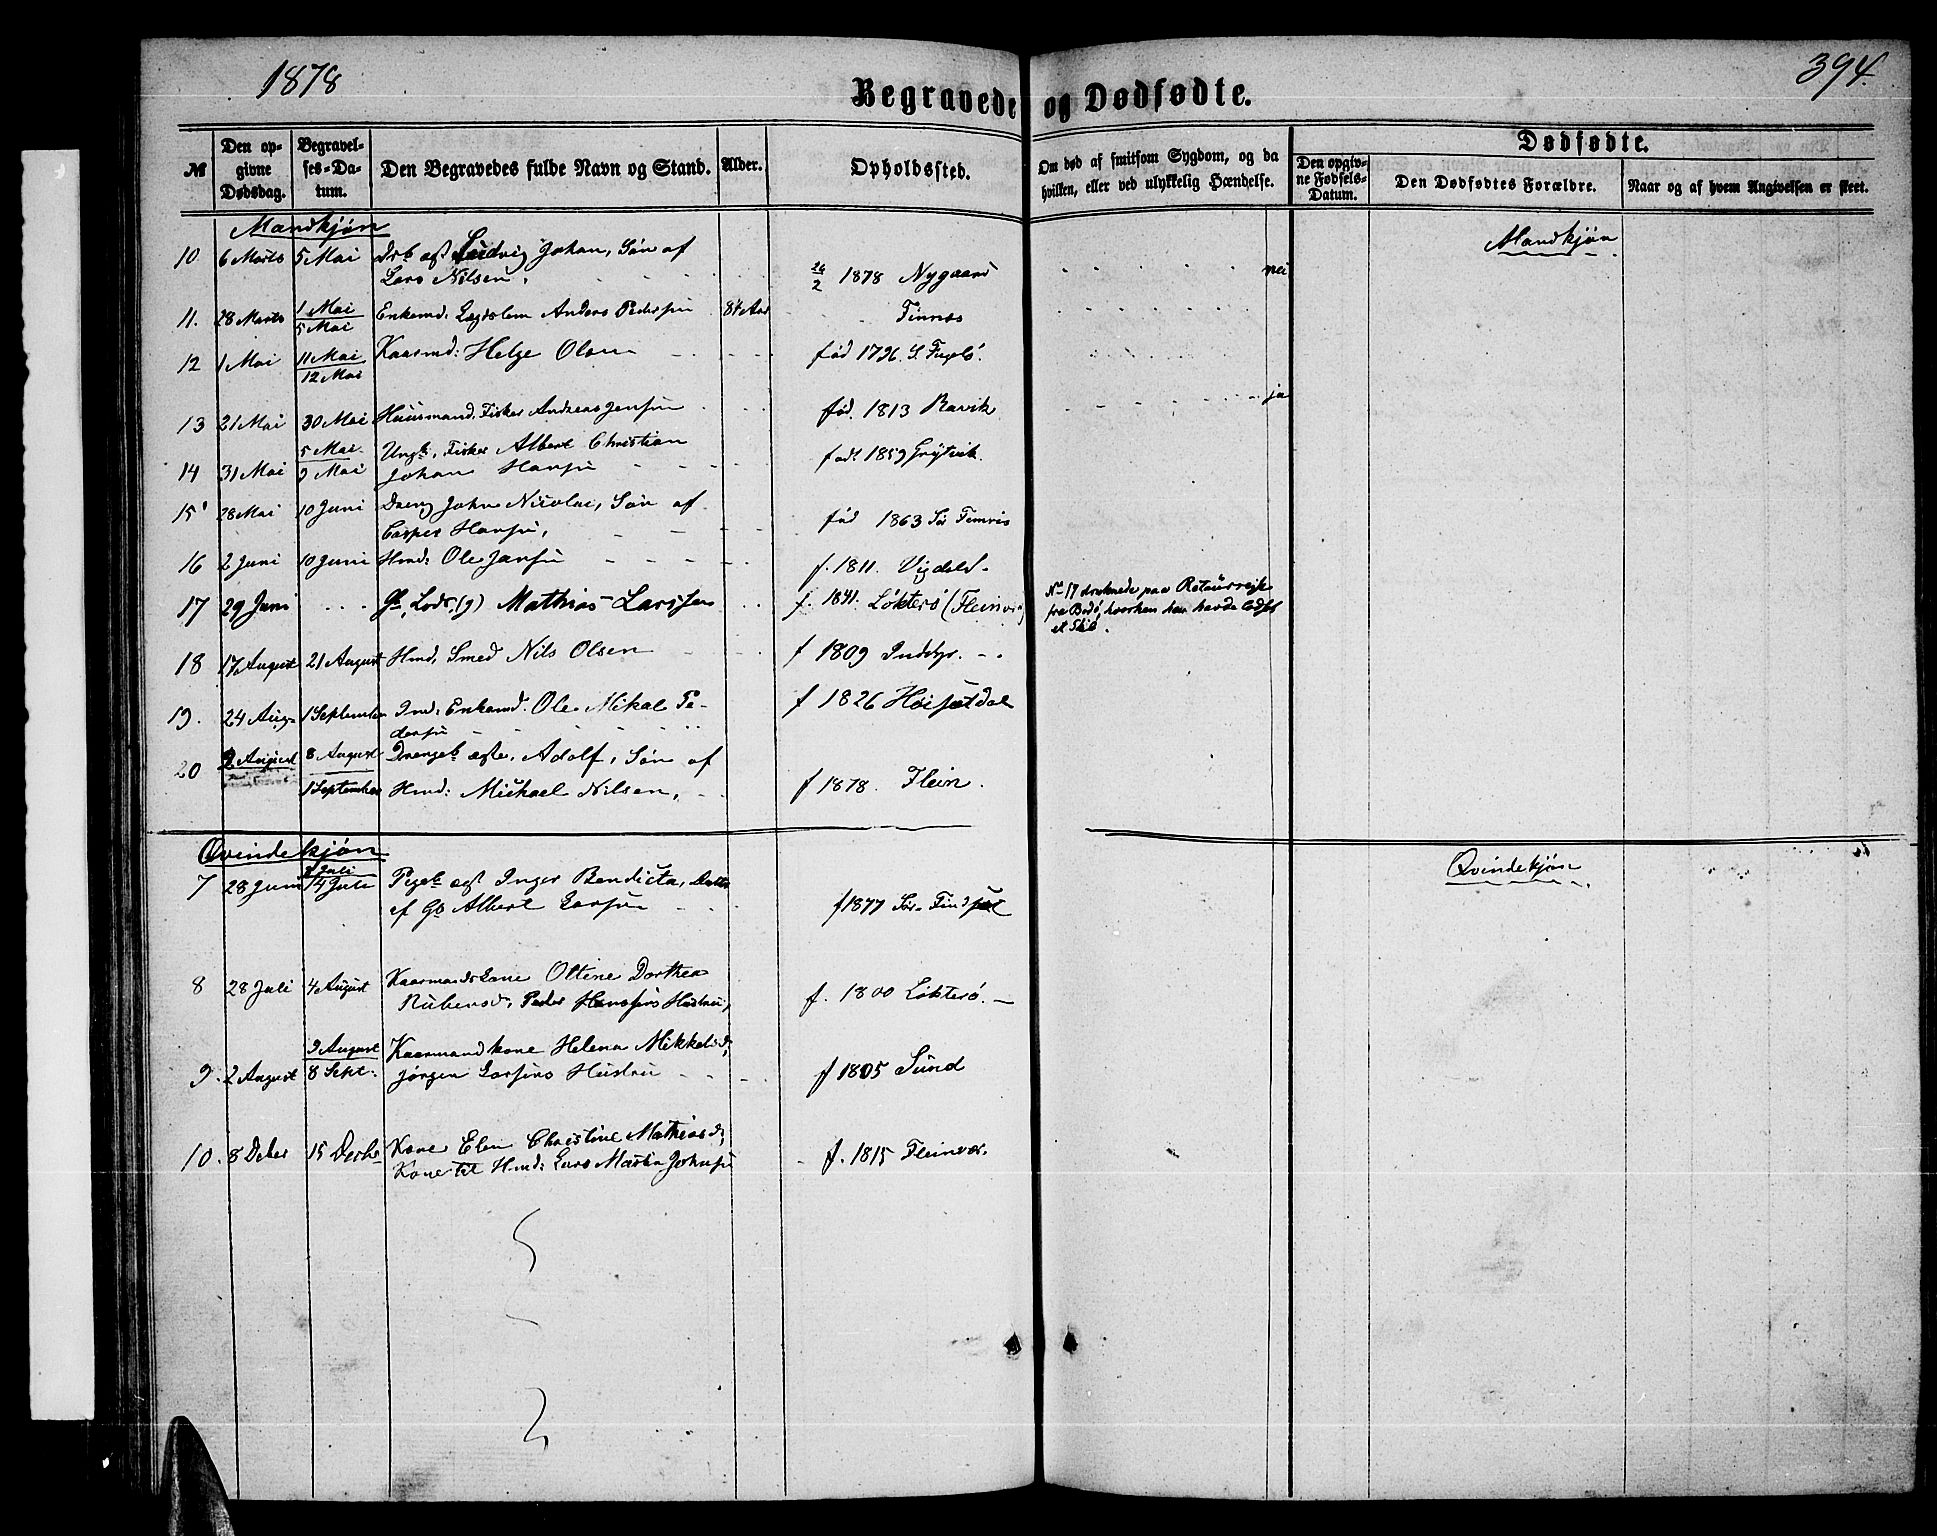 1878
394.
Begravede og Dødfødte.
№
Den opgivne Dødsdag.
Begravelses-Datum.
Den Begravedes fulde Navn og Stand.
Alder.
Opholdssted.
Om død af smitsom Sygdom, og da hvilken, eller ved ulykkelig Hændelse.
Dødfødte.
Den opgivne Fødsels-Datum.
Den Dødfødtes Forældre.
Naar og af hvem Angivelsen er skeet.
Mandkjøn
Mandkjøn
10 6 Marts 5 Mai Drb ægt Ludvig Johan, Søn af
Lars Nilsen, 1878 Nygaard nei
11. 28 Marts 1 Mai Enkemd: Lægdslem Anders Pedersen 84 Aar Finnæs
5 Mai
12 1 Mai 11 Mai Kaarmd: Helge Olsen født 1796. S. Fuglø.
12 Mai
13 21 Mai 30 Mai Huusmand. Fisker Andreas Jensen fød. 1813 Ravik ja
5 Mai. Ungk. Fisker Albert Christian
14 31 Mai 9 Mai Johan Hansen født 1859 Grytvik.
15 28 Mai 10 Juni Dreng John Nicolai, Søn af
Casper Hansen, fød 1863 Sør Finnæs
16 2 Juni 10 Juni Hmd: Ole Jansen f. 1811.
17 29 Juni Gb. Lods, (g) Mathias Larssen f. 1841. Løkterø (Fleinvær) No 17 druknede paa Retourreise
fra Bodø, hvorhen han havde lodset
et Skib.
18 17 August 21 August Hmd, Smed Nils Olsen f 1809 Inddyr.
19. 24 Aug. 1 September Ind: Enkemd. Ole Mikal Pe-
dersen f 1826 Høisætdal
20 2 August 8 August Drengeb ægte, Adolf, Søn af
1 September Hmd: Michael Nilsen, f 1878. Flein.
Qvindekjøn
Qvindekjøn
7 28 Juni 14 Juli Pigeb ægt Inger Bendicta, Datter
Juli
af Gb Albert Larsen f 1877 Sør-
8 28 Juli 4 August Kaarmandskone Ottine Dorthea
Rubensd, Peder Hanssens Hustru, f. 1800 Løkterø.
9 August Kaarmandkone Helena Mikkelsd,
9. 2 August 8 Sept. Jørgen Larsens Hustru f 1805 Sund
10. 8 Dcber 15 Decbr Kone Elen Christine Mathiasd,
Kone til Hmd: Lars Martin Johnsen f. 1815 Fleinvær.